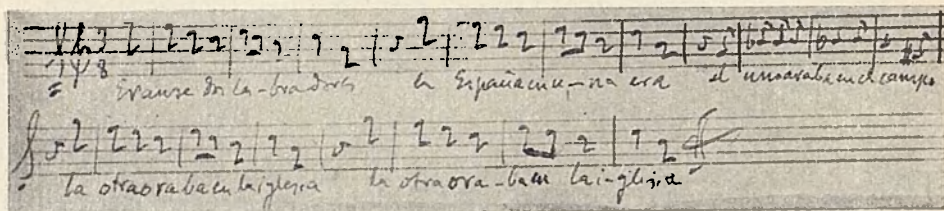 Eranse dos la-bradores en España en u-na era el uno araba en el campo
la otra oraba en la iglesia la otra ora-ba en la i-glesia